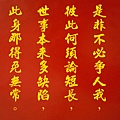 是非不必爭人我，
彼此何須論短長，
世事本來多缺陷，
此身那得免無常。